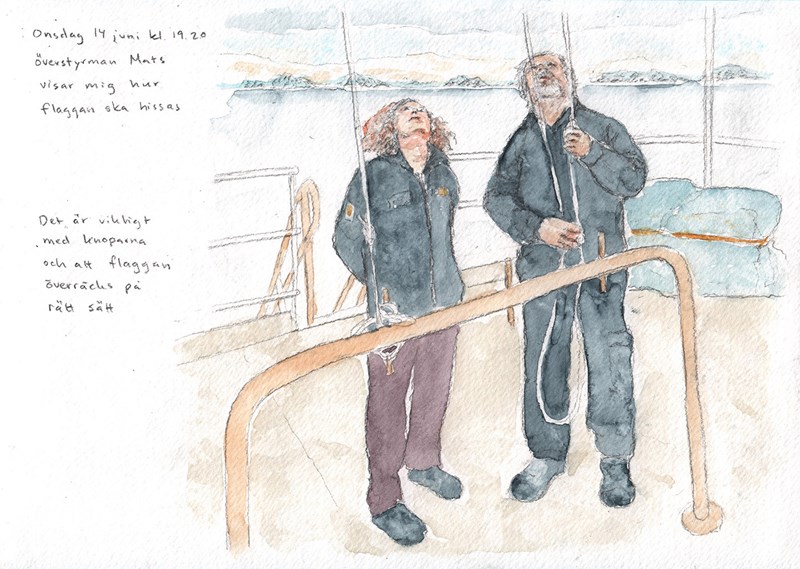 Onsdag 14 juni kl. 19.20
överstyrman Mats
visar mig hur
flaggan ska hissas
Det är viktigt
med knoparna
och att flaggan
överräcks på
rätt sätt